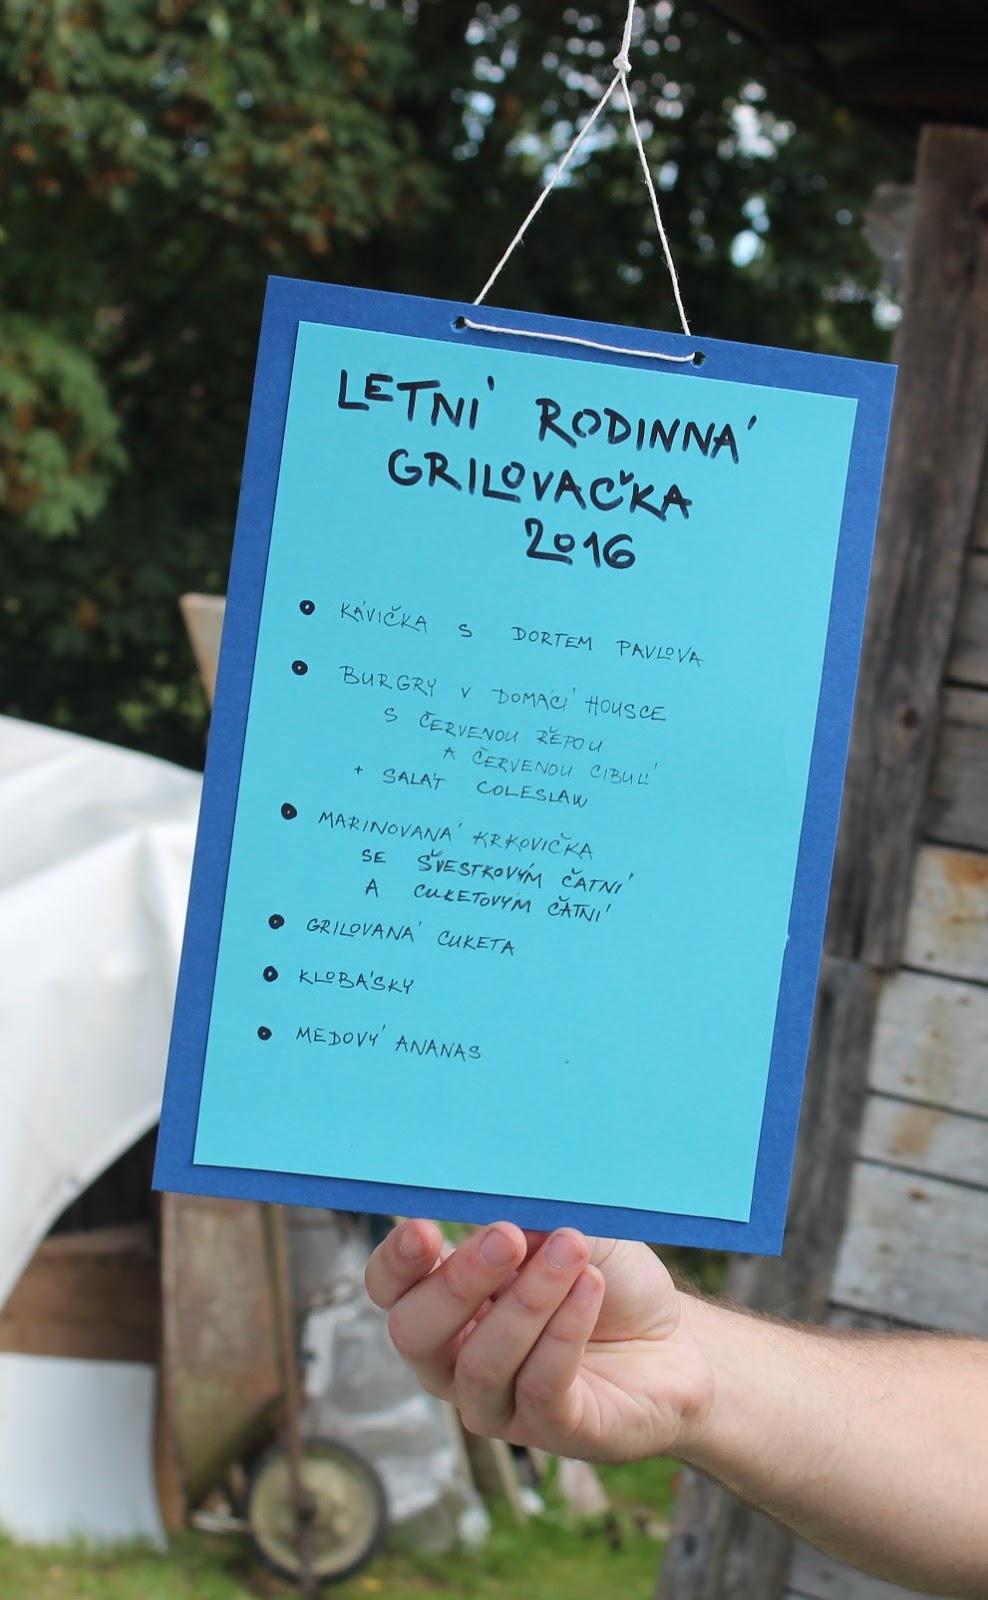 LETNÍ RODINNÁ
GRILOVAČKA
2016
• KÁVIČKA S DORTEM PAVLOVA
• BURGRY V DOMÁCÍ HOUSCE
S ČERVENOU ŘEPOU
A ČERVENOU CIBULÍ
+ SALÁT COLESLAW
• MARINOVANÁ KRKOVIČKA
SE ŠVESTKOVÝM ČATNÍ
A CUKETOVÝM ČATNÍ
• GRILOVANÁ CUKETA
• KLOBÁSKY
• MEDOVÝ ANANAS